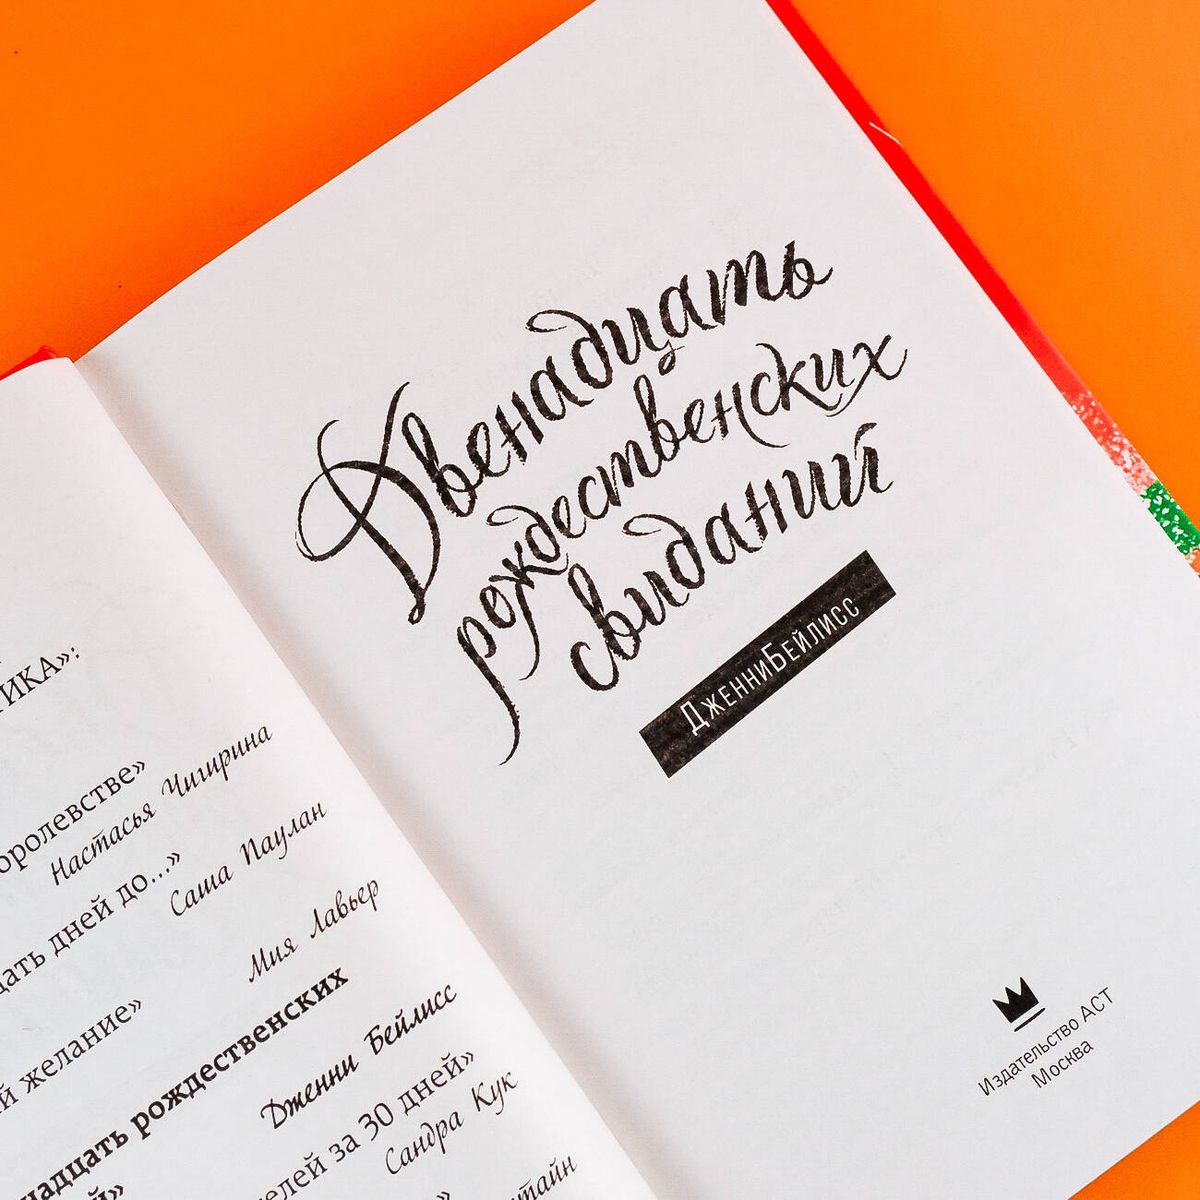 ТИКА»:
оролевстве»
Настасья Чигирина
дать дней до...»
Саша Паулан
Мия Лавьер
й желание»
надцать рождественских
Дженни Бейлисс
й»
елей за 30 дней»
Сандра Кук
»
Двенадцать
рождественских
свиданий
ДженниБейлисс
Издательство АСТ
Москва